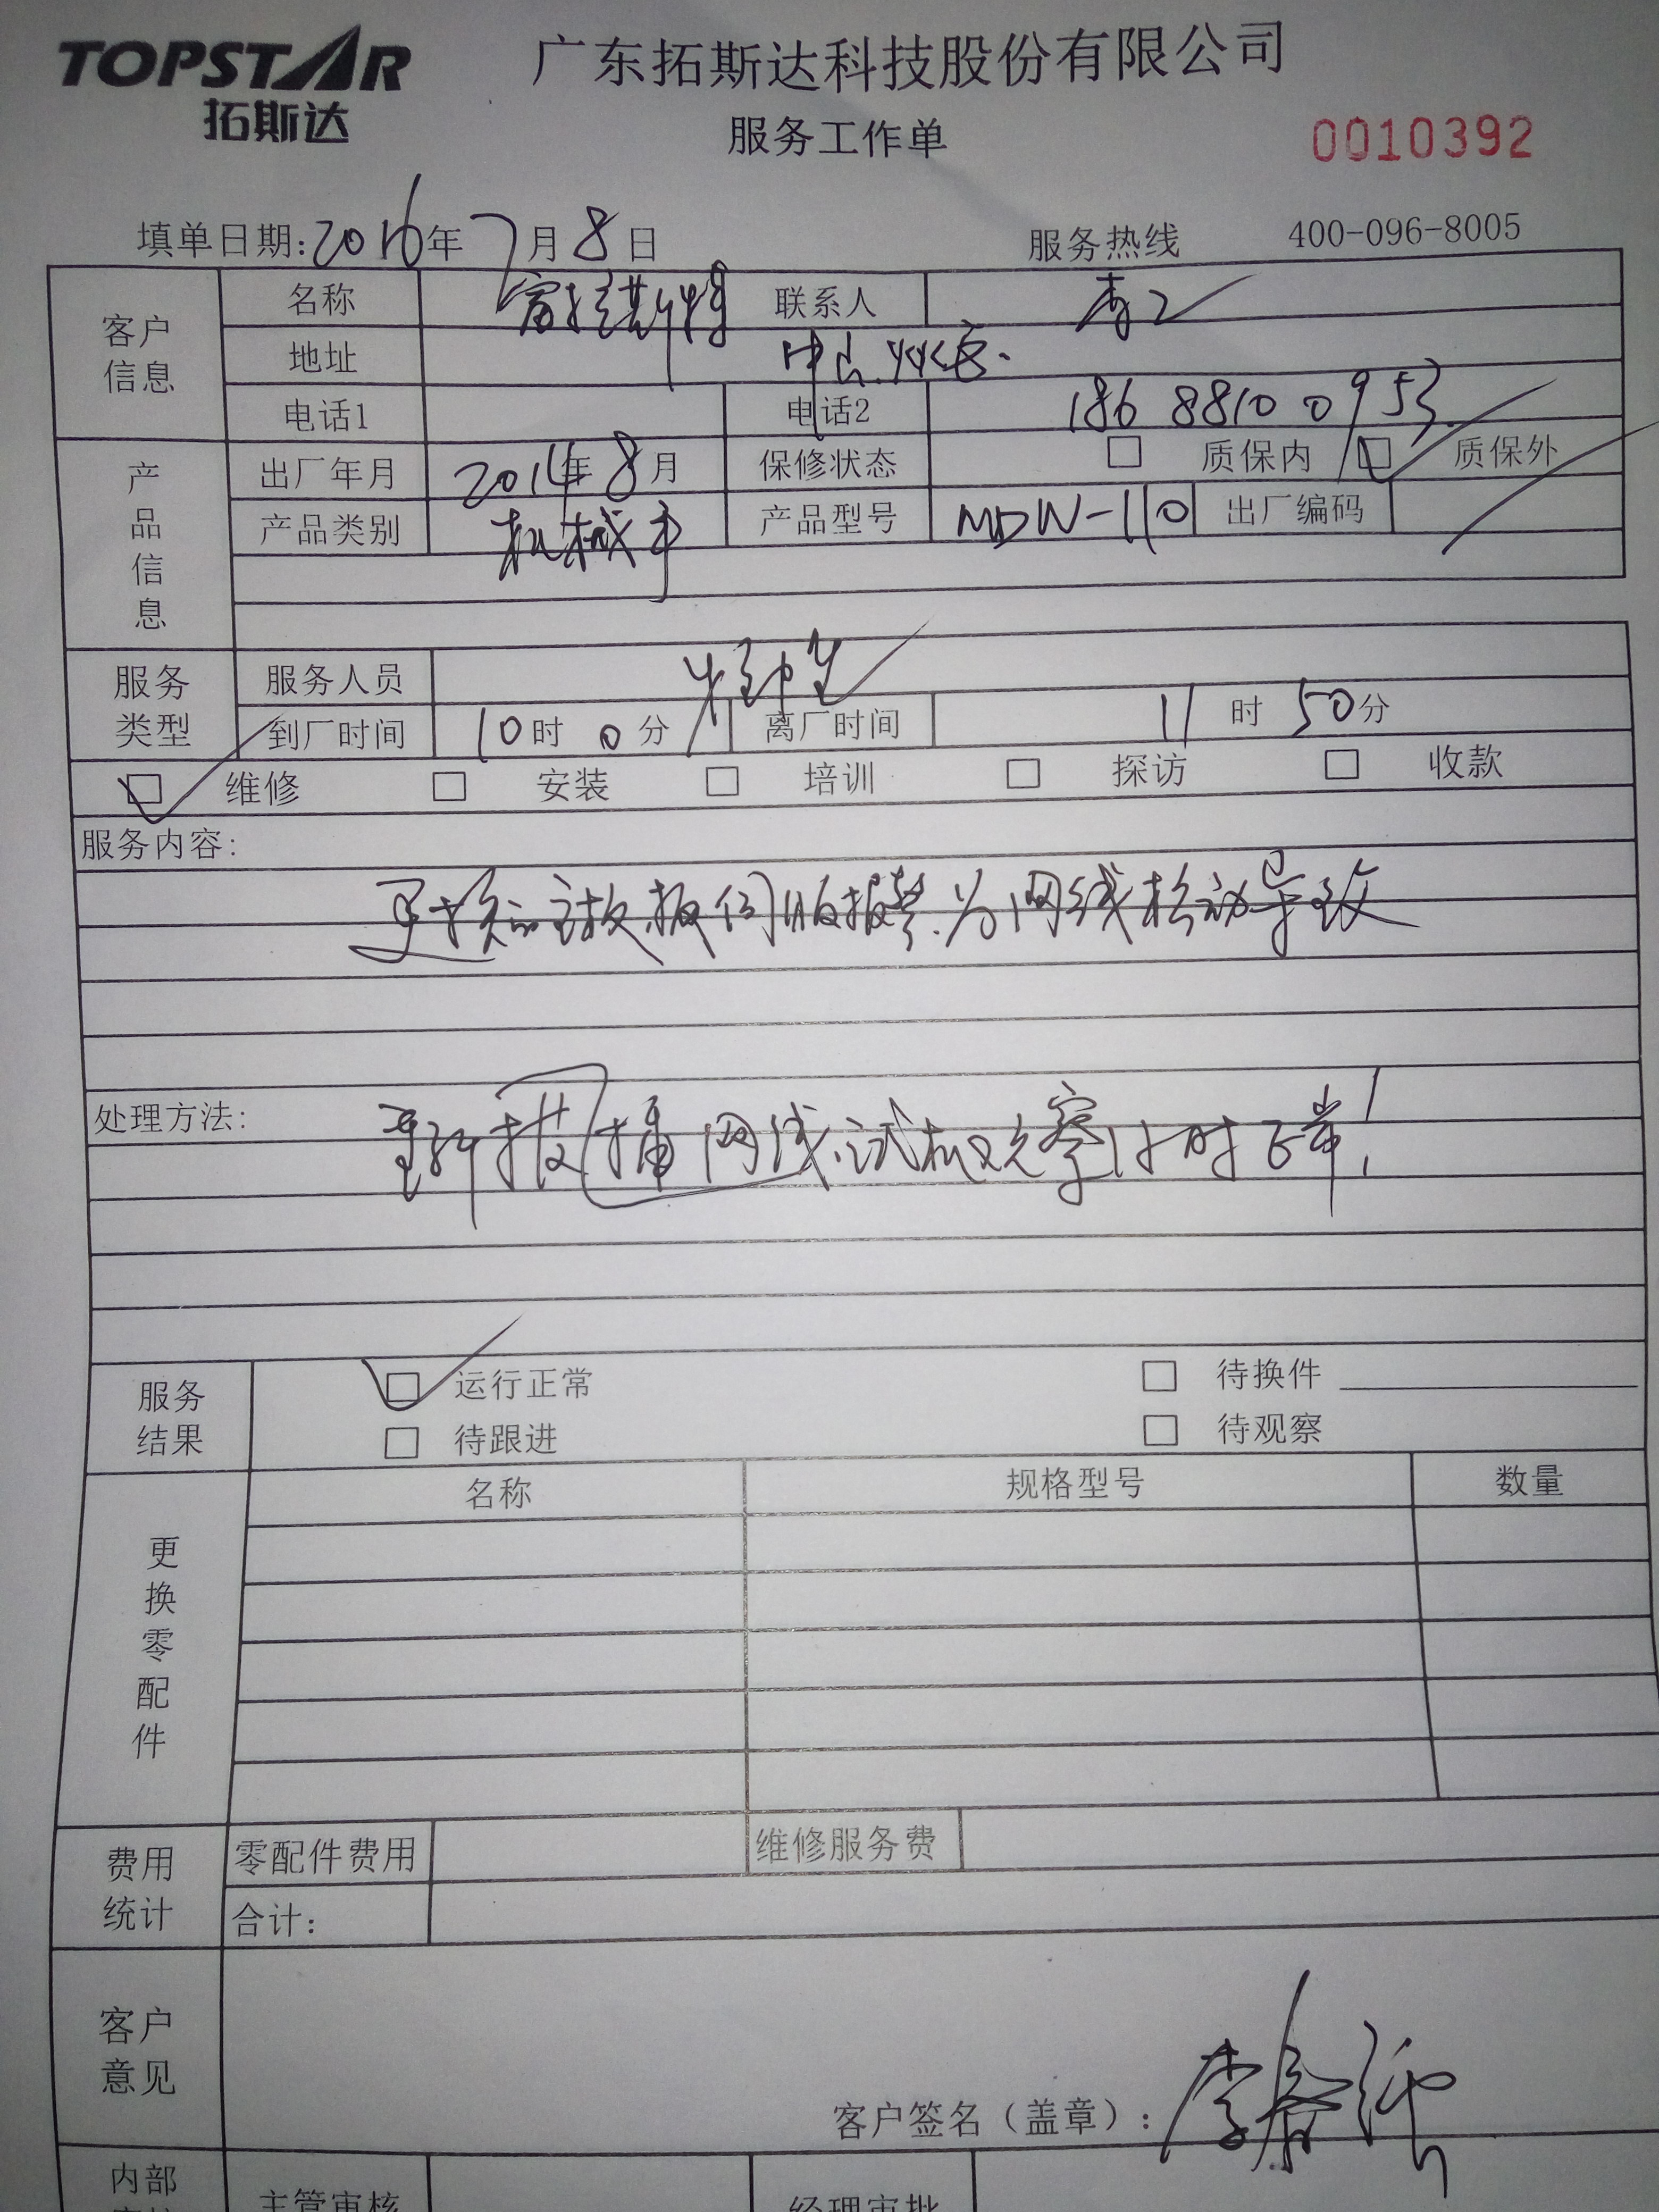 TOPSTAR
拓斯达
广东拓斯达科技股份有限公司
服务工作单
0010392
填单日期:2016年7月8日
服务热线 400-096-8005
客户信息
名称 富拉斯特 联系人 李工
地址 中山
电话1 电话2 18688100953
产品信息
出厂年月 2014年8月 保修状态 质保内 质保外
产品类别 机械手 产品型号 MDW-110 出厂编码
服务类型
服务人员
到厂时间 10时0分 离厂时间 11时50分
维修 安装 培训 探访 收款
服务内容:
更换 板伺服报警.为网线松动导致
处理方法:
重新拔插网线.试机观察1小时正常!
服务结果
运行正常 待换件
待跟进 待观察
更换零配件
名称 规格型号 数量
费用统计
零配件费用 维修服务费
合计:
客户意见
客户签名(盖章): 李
内部
主管审核 经理审批